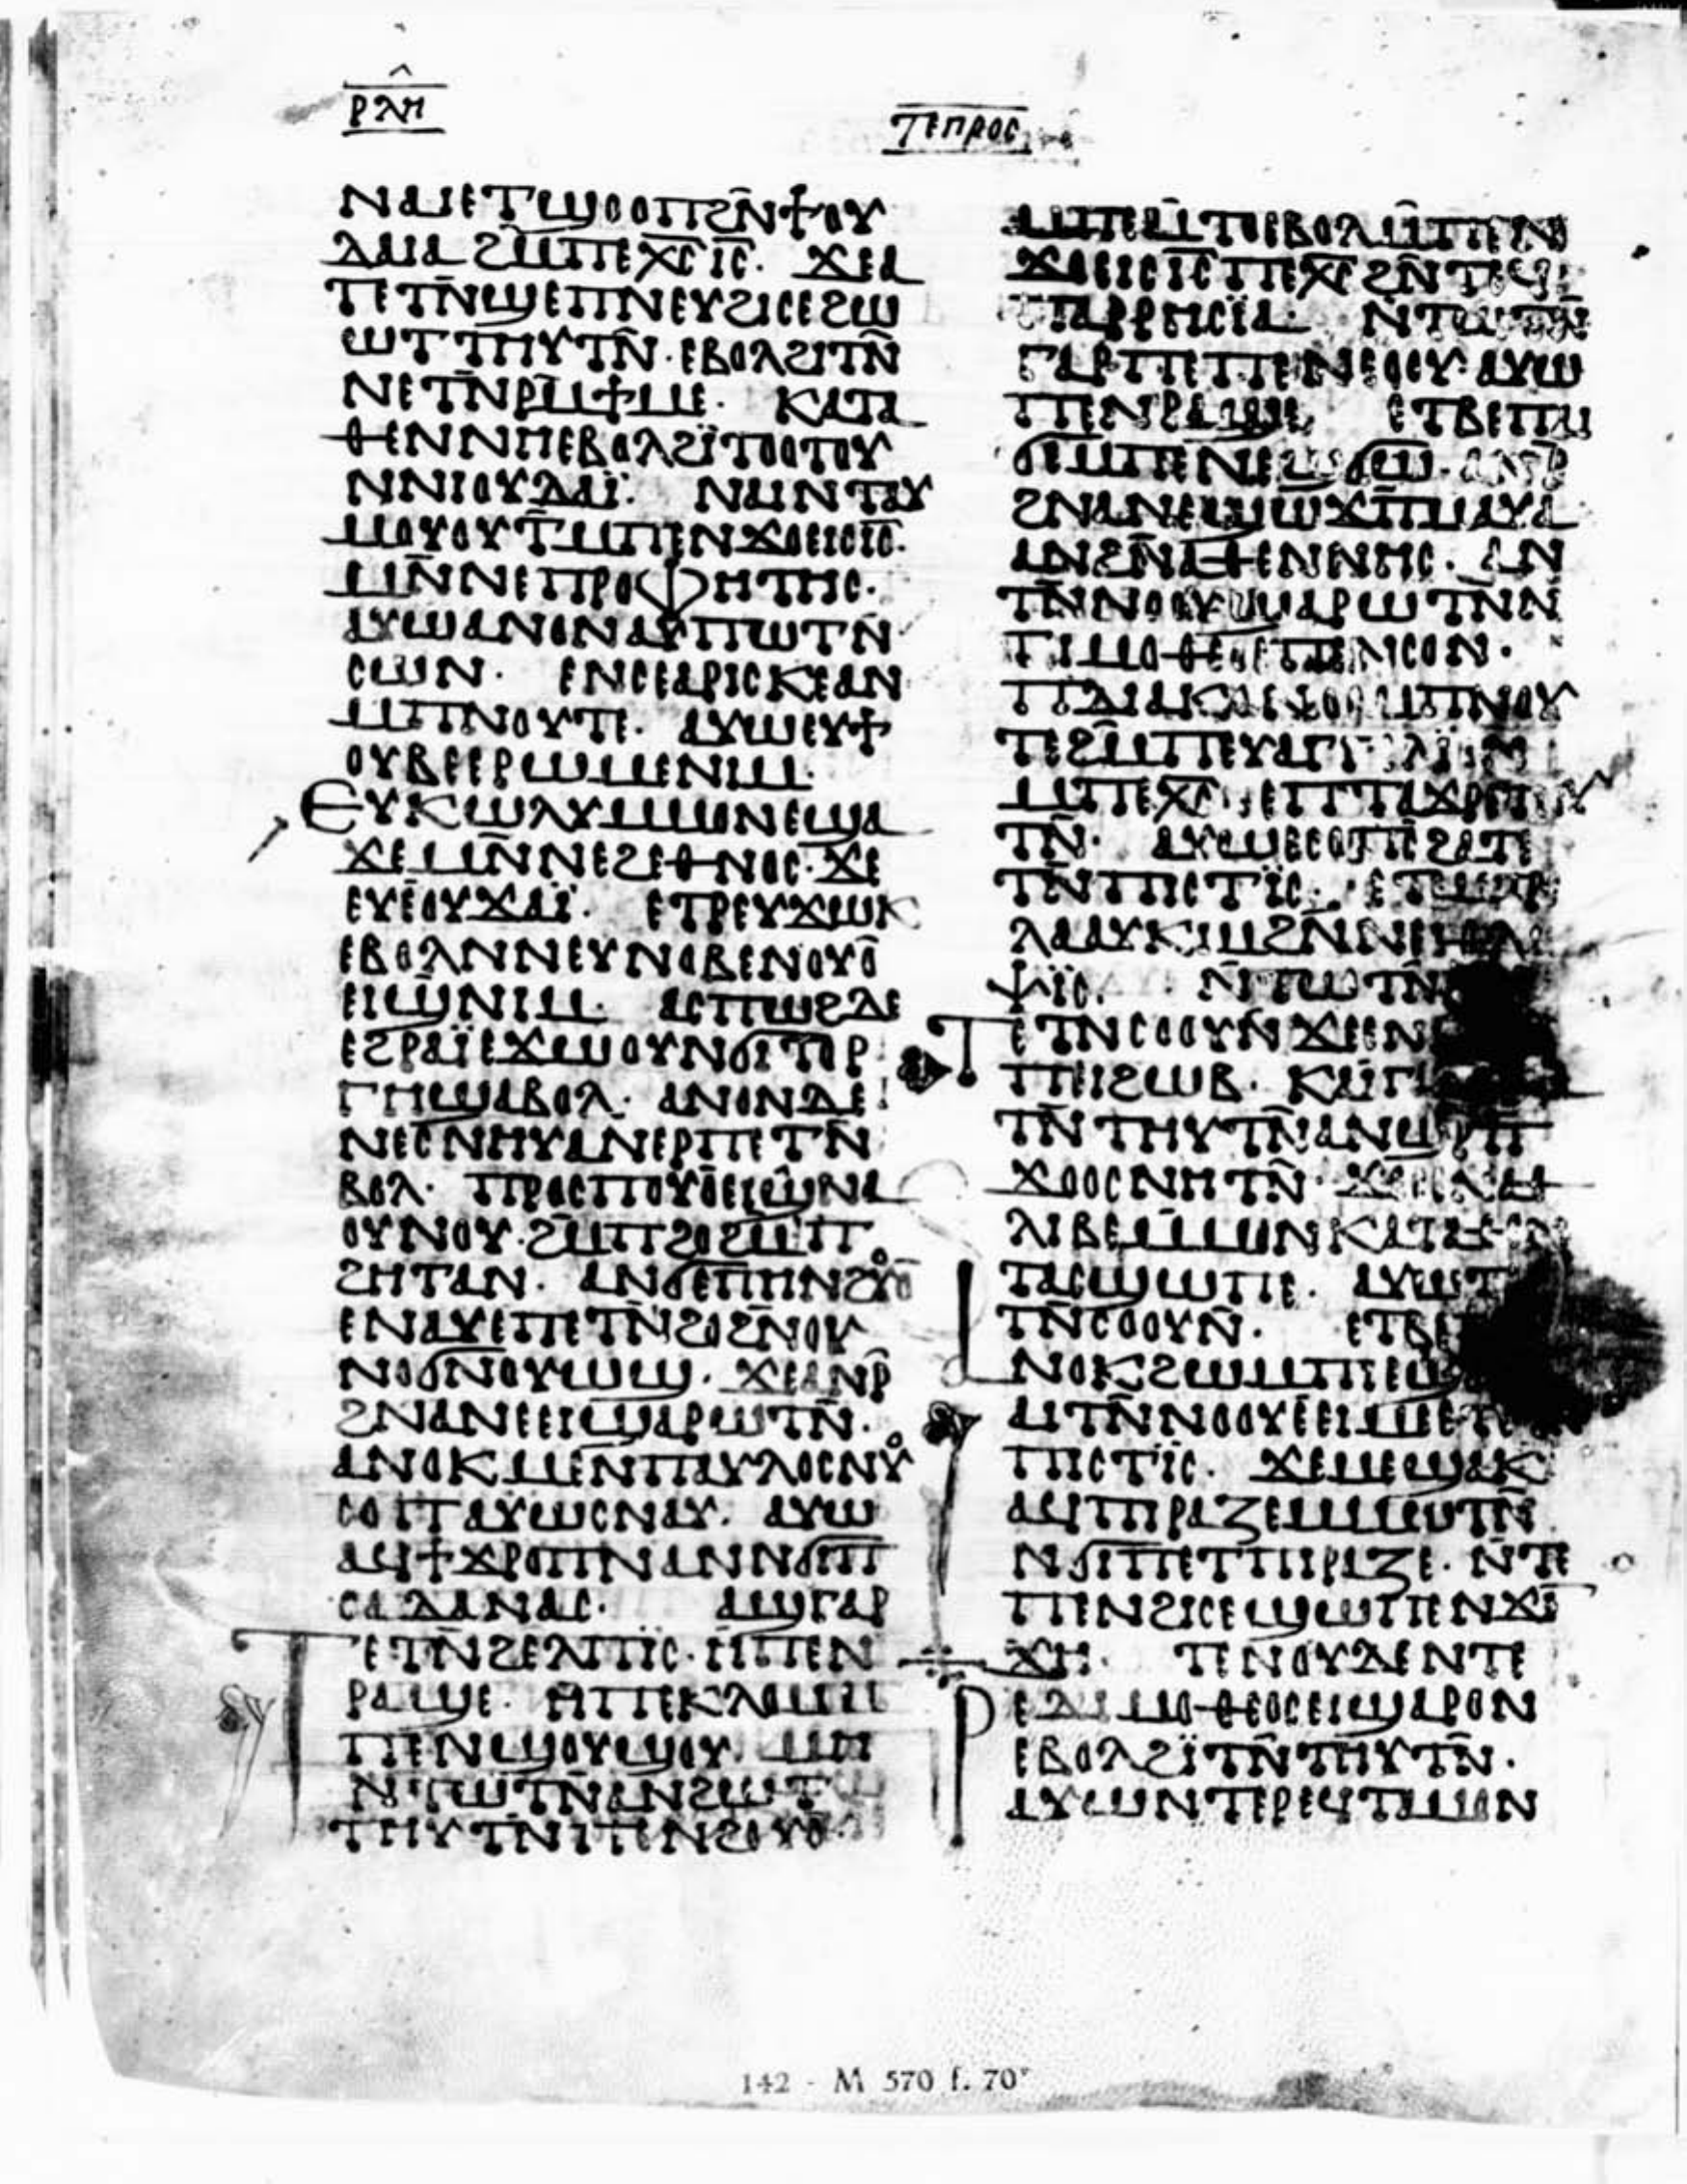 ⲣⲗⲏ
ⲧⲉⲡⲣⲟⲥ
ⲛⲁⲓⲉⲧϣⲟⲟⲡϩⲛ̄ϯⲟⲩ
ⲇⲁⲓⲁ ϩⲙ̄ⲡⲉⲭ̅ⲥ̅ ⲓ̅ⲥ̅. ϫⲉⲁ
ⲧⲉⲧⲛ̄ϣⲉⲡⲛⲉⲩϩⲓⲥⲉϩⲱ
ⲱⲧⲧⲏⲩⲧⲛ̄·ⲉⲃⲟⲗϩⲓⲧⲛ̄
ⲛⲉⲧⲛ̄ⲣⲙ̄ϯⲙⲉ· ⲕⲁⲧⲁ
ⲑⲉⲛⲛⲏⲉⲃⲟⲗϩⲓ̈ⲧⲟⲟⲧⲟⲩ
ⲛⲛⲓⲟⲩⲇⲁⲓ̈· ⲛⲁⲓⲛⲧⲁⲩ
ⲙⲟⲩⲟⲩⲧ̄ⲙⲡⲉⲛϫⲟⲉⲓⲥⲓ̅ⲥ̅.
ⲙⲛ̄ⲛⲉⲡⲣⲟⲫⲏⲧⲏⲥ·
ⲁⲩⲱⲁⲛⲟⲛⲁⲩⲡⲱⲧⲛ̄
ⲥⲱⲛ· ⲉⲛⲥⲉⲁⲣⲓⲥⲕⲉⲁⲛ
ⲙⲡⲛⲟⲩⲧⲉ· ⲁⲩⲱⲉⲩϯ
ⲟⲩⲃⲉⲉⲣⲱⲙⲉⲛⲓⲙ·
ⲉⲩⲕⲱⲗⲩⲙⲙⲟⲛⲉϣⲁ
ϫⲉⲙⲛ̄ⲛⲉϩⲉⲑⲛⲟⲥ·ϫⲉ
ⲉⲩⲉⲟⲩϫⲁⲓ̈· ⲉⲧⲣⲉⲩϫⲱⲕ
ⲉⲃⲟⲗⲛⲛⲉⲩⲛⲟⲃⲉⲛⲟⲩⲟ̄
ⲉⲓϣ̄ⲛⲓⲙ· ⲁⲥⲡⲱϩⲇⲉ
ⲉϩⲣⲁⲓ̈ⲉϫⲱⲟⲩⲛϭⲓⲧⲟⲣ
ⲅⲏϣⲁⲃⲟⲗ· ⲁⲛⲟⲛⲇⲉ
ⲛⲉⲥⲛⲏⲩⲁⲛⲉⲣⲡⲉⲧⲛ̄
ⲃⲟⲗ· ⲡⲣⲟⲥⲡⲟⲩⲟ̄ⲉⲓϣ̄ⲛⲁ
ⲟⲩⲛⲟⲩ·ϩⲙ̄ⲡϩⲟϩⲙ̄ⲡ
ϩⲏⲧⲁⲛ· ⲁⲛϭⲉⲡⲏⲛϩⲟⲩⲟ̄
ⲉⲛⲁⲩⲉⲡⲉⲧⲛ̄ϩⲟϩⲛ̄ⲟⲩ
ⲛⲟϭⲛⲟⲩⲱϣ· ϫⲉⲁⲛⲣ̄
ϩⲛⲁⲛⲉⲉⲓϣⲁⲣⲱⲧⲛ̄·
ⲁⲛⲟⲕⲙⲉⲛⲡⲁⲩⲗⲟⲥⲛⲟⲩ
ⲥⲟⲡⲁⲩⲱⲥⲛⲁⲩ· ⲁⲩⲱ
ⲁϥϯϫⲣⲟⲡⲛⲁⲛⲛϭⲓⲡ
ⲥⲁⲇⲁⲛⲁⲥ· ⲁϣⲅⲁⲣ
ⲧⲉⲧⲛ̄ϩⲉⲗⲡⲓ̈ⲥ·ⲏⲡⲉⲛ
ⲣⲁϣⲉ· ⲏⲡⲉⲕⲗⲟⲙⲙ
ⲡⲉⲛϣⲟⲩϣⲟⲩ· ⲙⲏ
ⲛⲧⲱⲧⲛ̄ⲁⲛϩⲱⲧ
ⲧⲏⲩⲧⲛ̄ⲡⲉⲛϩⲟⲩⲟ̄·
ⲙⲡⲉⲙ̄ⲧⲟⲉⲃⲟⲗⲙ̄ⲡⲉⲛ
ϫⲟⲉⲓⲥⲓ̅ⲥ̅ⲡⲉⲭ̅ⲥ̅ϩⲛ̄ⲧⲉϥ
ⲡⲁⲣⲣⲏⲥⲓ̈ⲁ· ⲛ̄ⲧⲱⲧⲛ̄
ⲅⲁⲣⲡⲉⲡⲉⲛⲉⲟⲟⲩ·ⲁⲩⲱ
ⲡⲉⲛⲣⲁϣⲉ· ⲉⲧⲃⲉⲡⲁⲓ
ϭⲉⲙⲡⲉⲛⲉϣϭⲱ·ⲁⲛⲣ̄
ϩⲛⲁⲛⲉϣⲱϫⲡ̄ⲙⲁⲩⲁ
ⲁⲛϩⲛ̄ⲁⲑⲉⲛⲛⲏⲥ· ⲁⲛ
ⲧⲛ̄ⲛⲟⲟⲩϣⲁⲣⲱⲧⲛ̄ⲛ
ⲧⲓⲙⲟⲑⲉⲟⲥⲡⲉⲛⲥⲟⲛ·
ⲡⲇⲓⲁⲕⲟⲛⲟⲥⲙⲡⲛⲟⲩ
ⲧⲉϩⲙ̄ⲡⲉⲩⲁⲅⲅⲉⲗⲓ̈ⲟⲛ
ⲙⲡⲉⲭ̅ⲥ̅ ⲉⲡⲧⲁϫⲣⲉⲧⲏⲩ
ⲧⲛ̄· ⲁⲩⲱⲉⲥⲟⲡⲥ̄ϩⲁⲧⲉ
ⲧⲛ̄ⲡⲓⲥⲧⲓ̈ⲥ· ⲉⲧⲙⲧⲣⲉ
ⲗⲁⲁⲩⲕⲓⲙϩⲛ̄ⲛⲉⲓⲑⲗⲓ
ⲯⲓ̈ⲥ. ⲛ̄ⲧⲱⲧⲛ̄
ⲧⲉⲧⲛⲥⲟⲟⲩⲛ̄ϫⲉⲉⲛ
ⲡⲉⲓϩⲱⲃ· ⲕⲁⲓ̈ⲅ
ⲧⲛ̄ⲧⲏⲩⲧⲛ̄ⲁⲛϣⲣ̄ⲡ
ϫⲟⲟⲥⲛⲏⲧⲛ̄·ϫⲉⲥⲉⲛⲁⲑ
ⲗⲓⲃⲉⲙⲙⲟⲛⲕⲁⲧⲁⲑⲉⲛ
ⲧⲁⲥϣⲱⲡⲉ· ⲁⲩⲱⲧ
ⲧⲛ̄ⲥⲟⲟⲩⲛ̄· ⲉⲧⲃⲉ
ⲛⲟⲕϩⲱⲙⲡⲉⲓϣ
ⲁⲓⲧⲛ̄ⲛⲟⲟⲩⲉⲉⲓⲙⲉⲉⲧ
ⲡⲓⲥⲧⲓ̈ⲥ· ϫⲉⲙⲉϣⲁⲕ
ⲁϥⲡⲓⲣⲁⲍⲉⲙⲙⲱⲧⲛ̄
ⲛϭⲓⲡⲉⲧⲡⲓⲣⲁⲍⲉ·ⲛ̄ⲧⲉ
ⲡⲉⲛϩⲓⲥⲉϣⲱⲡⲉⲛϫⲓ̄
ϫⲏ· ⲧⲉⲛⲟⲩⲇⲉⲛⲧⲉ
ⲣⲉⲇⲓⲙⲟⲑⲉⲟⲥⲉⲓϣⲁⲣⲟⲛ
ⲉⲃⲟⲗϩⲓ̈ⲧⲛ̄ⲧⲏⲩⲧⲛ̄·
ⲁⲩⲱⲛⲧⲉⲣⲉϥⲧⲁⲙⲟⲛ
142 - M 570 f. 70ᵛ